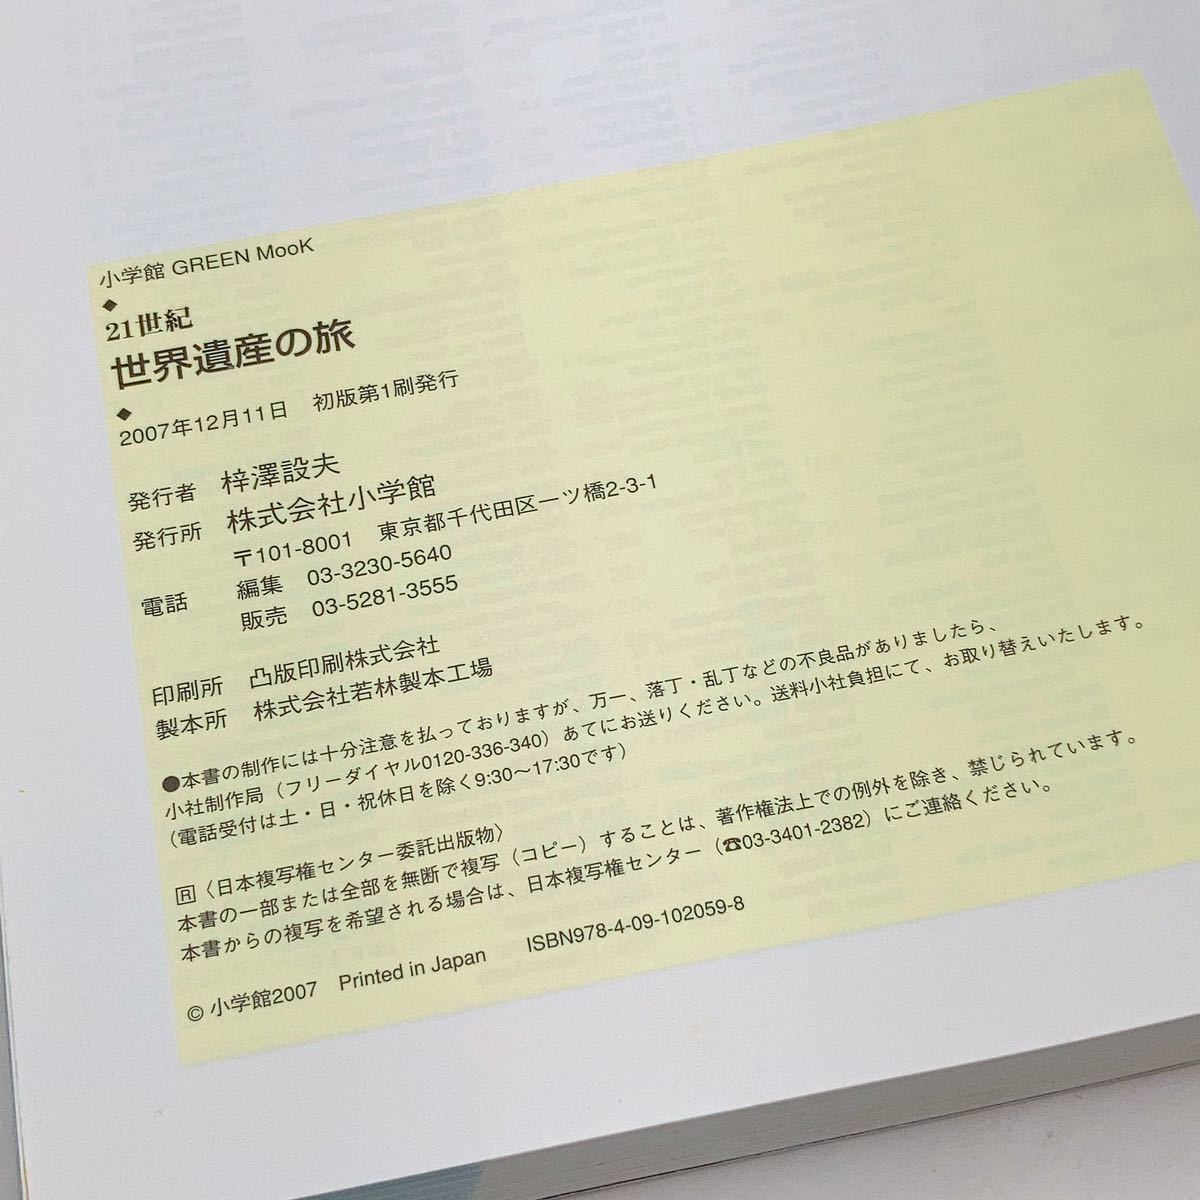 小学館 GREEN MooK
◆
21世紀
世界遺産の旅
◆
2007年12月11日　初版第1刷発行
発行者　梓澤設夫
発行所　株式会社小学館
〒101-8001　東京都千代田区一ツ橋2-3-1
電話　編集　03-3230-5640
販売　03-5281-3555
印刷所　凸版印刷株式会社
製本所　株式会社若林製本工場
●本書の制作には十分注意を払っておりますが、万一、落丁・乱丁などの不良品がありましたら、
小社制作局（フリーダイヤル0120-336-340）あてにお送りください。送料小社負担にて、お取り替えいたします。
（電話受付は土・日・祝休日を除く9:30〜17:30です）
R〈日本複写権センター委託出版物〉
本書の一部または全部を無断で複写（コピー）することは、著作権法上での例外を除き、禁じられています。
本書からの複写を希望される場合は、日本複写権センター（☎03-3401-2382）にご連絡ください。
© 小学館2007　Printed in Japan　ISBN978-4-09-102059-8